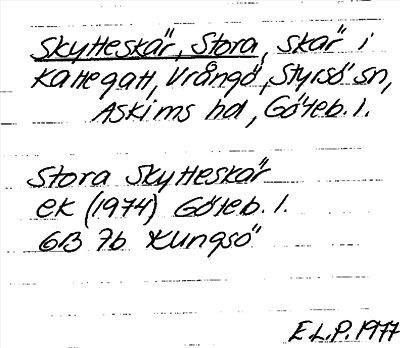 Skytteskär, Stora, skär i
Kattegatt, Vrångö, Styrsö sn,
Askims hd, Göteb. l.
Stora Skytteskär
ek (1974) Göteb. l.
6B 7b Kungsö
E.L.P. 1977